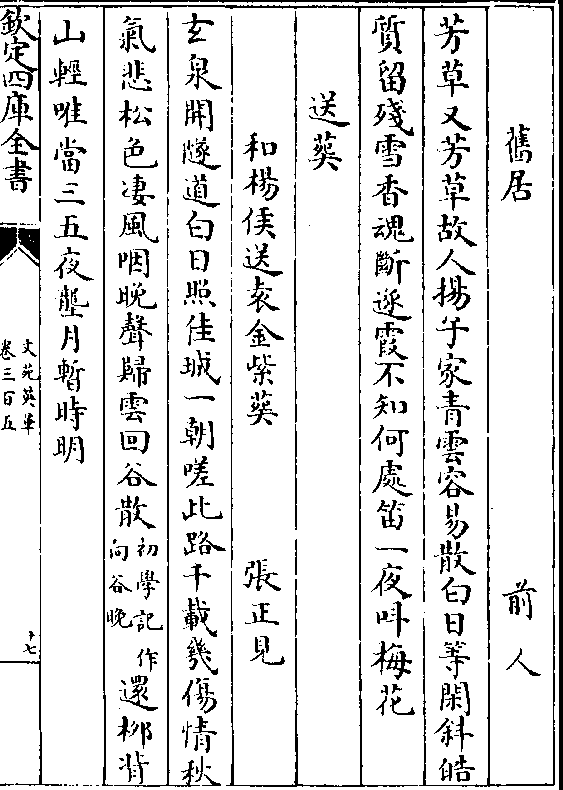 舊居　前人
芳草又芳草故人揚子家青雲容易散白日等閑斜皓
質留殘雪香魂斷逐霞不知何處笛一夜叫梅花
送葬
和楊侯送袁金紫葬　張正見
玄泉開隧道白日照佳城一朝嗟此路千載幾傷情秋
氣悲松色凄風咽晚聲歸雲回谷散初學記作向谷晚還柳背
山輕唯當三五夜壟月暫時明
欽定四庫全書
文苑英華
卷三百五
十七